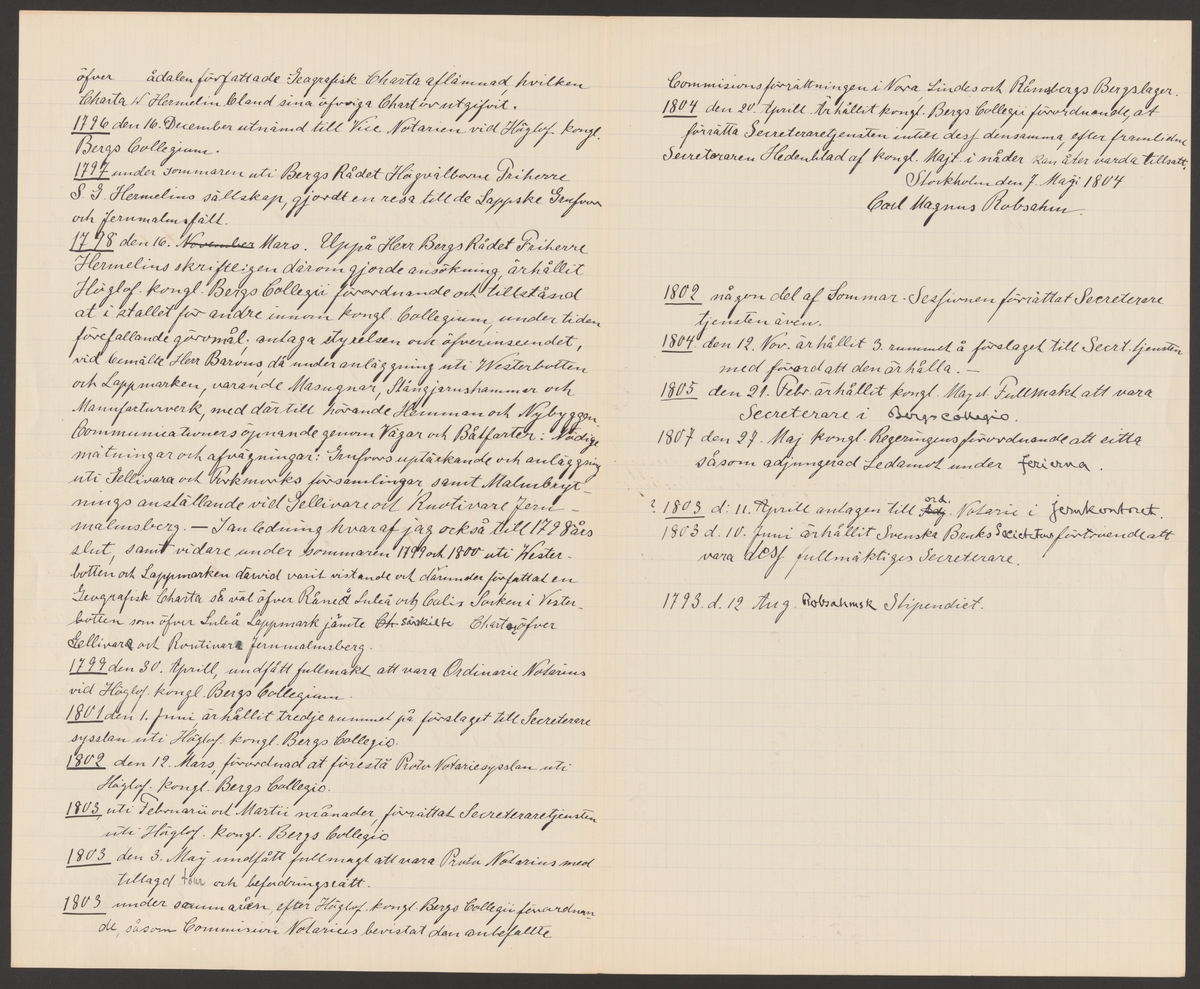 öfver ådalen författade Geografisk Charta aflämnad, hvilken
Charta Hermelin bland sina öfvriga Chartor utgifvit.
1796 den 16. December utnämd till Vice Notarien vid Höglof. kongl.
Bergs Collegium.
1797 under sommaren uti Bergs Rådet Högvälborne Friherre
S. G. Hermelins sällskap, gjordt en resa till de Lappske Grufvor
och Jernmalmsfält.
1798 den 16. November Mars. Uppå Herr Bergs Rådet Friherre
Hermelins skriftligen därom gjorde ansökning, ärhållit
Höglof. kongl. Bergs Collegii förordnande och tillstånd
at i stället för andre innom kongl. Collegium, under tiden
förefallande göromål, antaga styrelsen och öfverinseendet,
vid bemälte Herr Barons, då under anläggning uti Westerbotten
och Lappmarken, varande Masugnar, Stångjärnshammar och
Manufacturverk, med därtill hörande Hemman och Nybyggen
Communicationers öpnande genom Vägar och Båtfarter: Nödige
mätningar och afvägningar: Grufvors uptäckande och anläggning
uti Gellivara och Jockmocks församlingar, samt Malmbryt-
nings anställande vid Gellivare och Ruotivare Jern-
malmsberg. — I anledning hvaraf jag också till 1798 års
slut, samt vidare under sommaren 1799 och 1800 uti Wester-
botten och Lappmarken därvid varit vistande och därunder författat en
Geografisk Charta så väl öfver Råneå Luleå och Calix Socken i Vester-
botten som öfver Luleå Lappmark jämte Ch särskilte Chartor öfver
Gellivara och Routivara Jernmalmsberg.
1799 den 30. Aprill, undfått fullmakt att vara Ordinarie Notarius
vid Höglof. kongl. Bergs Collegium.
1801 den 1. Juni, ärhållit tredje rummet på förslaget till Secreterare
sysslan uti Höglof. kongl. Bergs Collegio.
1802 den 12. Mars, förordnad at förestå Proto Notariesysslan uti
Höglof. kongl. Bergs Collegio.
1803 uti Februarii och Martii månader, förrättat Secreteraretjensten
uti Höglof. kongl. Bergs Collegio
1803 den 3. Maij undfått fullmagt att vara Proto Notarius med
tillagd tour och befordringsrätt.
1803 under sommaren, efter Höglof. kongl. Bergs Collegii förordnan-
de, såsom Commission Notarius bevistat den anbefallte
Commisionsförrättningen i Nora Lindes och Ramsbergs Bergslager.
1804 den 20. Aprill ärhållit kongl. Bergs Collegii förordnande, at
förrätta Secreteraretjensten intill dess densamma, efter framlidne
Secreteraren Hedenblad af kongl. Majt. i nåder kan åter varda tillsatt.
Stockholm den 7 Maji 1804
Carl Magnus Robsahm.
1802 någon del af Sommar-Sessionen förrättat Secreterare
tjensten även.
1804 den 12. Nov. ärhållit 3. rummet å förslaget till Secret. tjensten
med förord att den ärhålla. —
1805 den 21. Febr. ärhållit kongl. Maj:ts Fullmakt att vara
Secreterare i Bergscollegio.
1807 den 27. Maj kongl. Regeringens förordnande att sitta
såsom adjungerad Ledamot under ferierna.
? 1803 d: 11. Aprill antagen till Adj ord. Notarie i Jernkontoret.
1803 d. 10. Juni ärhållit Svenska Bruks Societetens förtroende att
vara dess fullmäktiges Secreterare.
1793. d. 12 Aug. Robsahmsk Stipendiet.